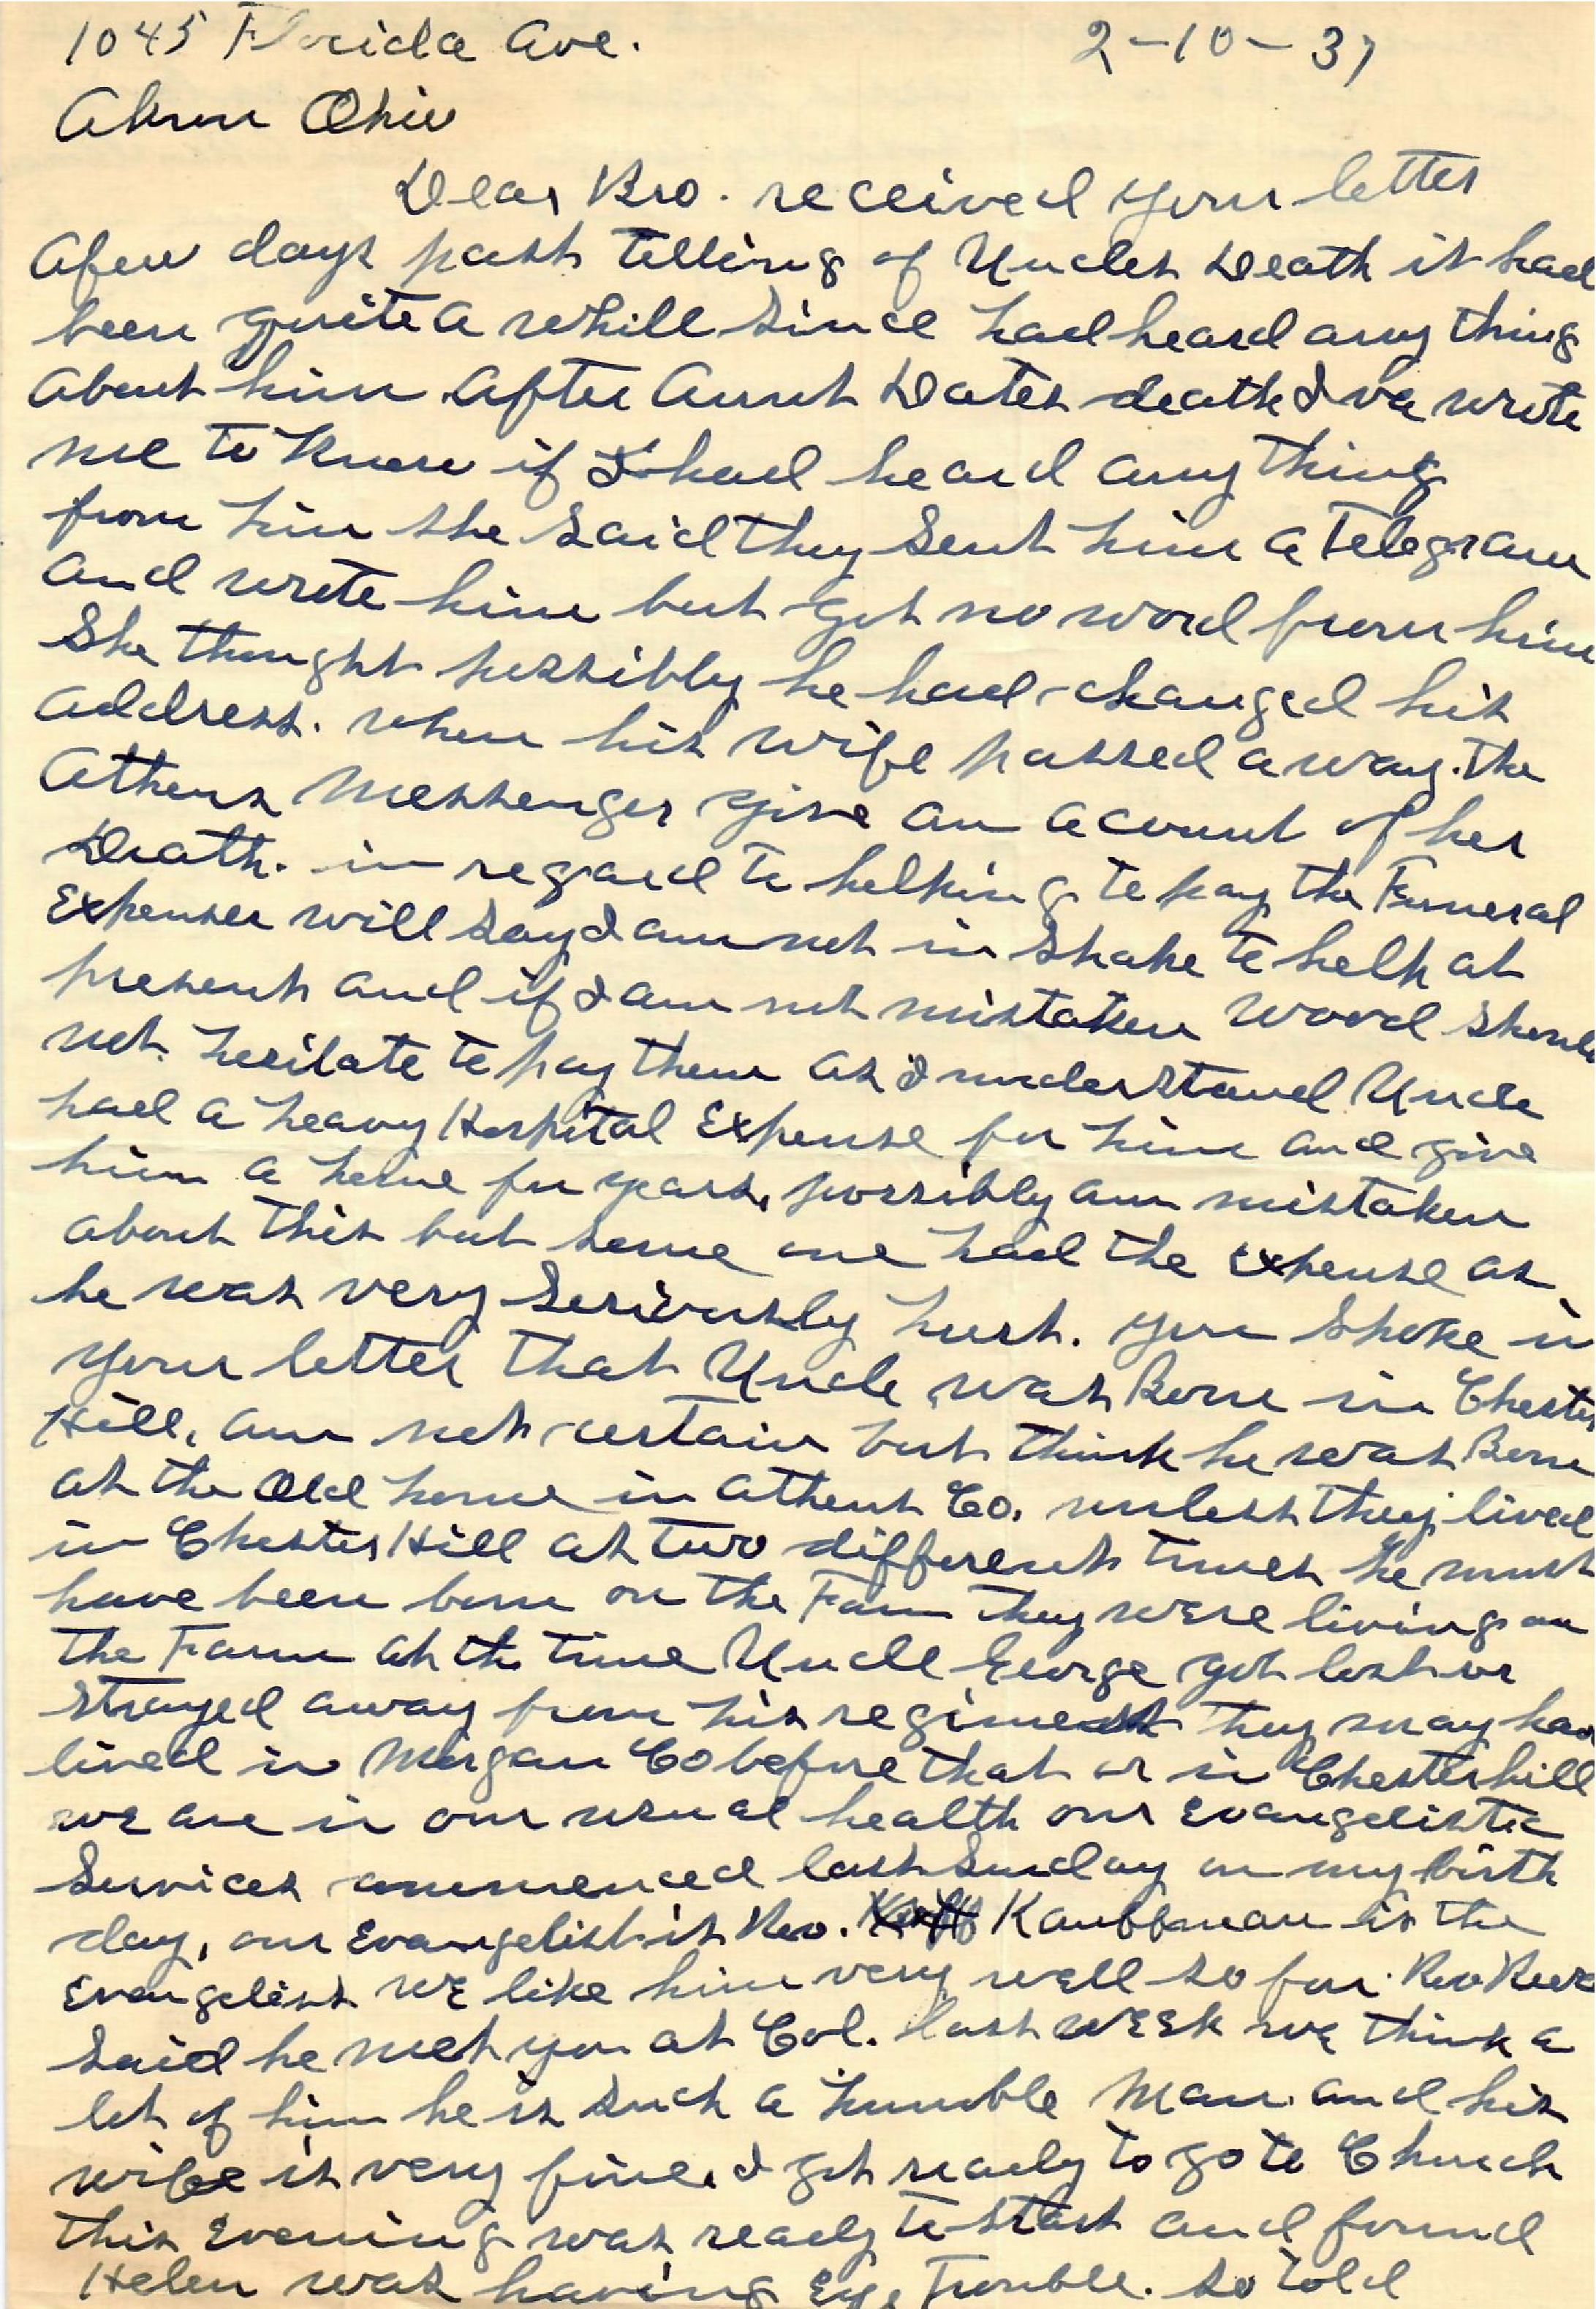 1045 Florida Ave. 2-10-37
Akron Ohio
Dear Bro. received your letter
afew days past telling of Uncles Death it had
been quite a whill since had heard any thing
about him After Aunt Dates death Iva wrote
me to know if I had heard any thing
from him she said they sent him a Telegram
and wrote him but got no word from him
She thought possibly he had changed his
address. when his wife passed away. the
Athens Messenger give an acount of her
Death. in regard to helping to pay the Funeral
Expenses will say I am not in shape to help at
present and if I am not mistaken Wood should
not hesitate to pay them as I understand Uncle
had a heavy Hospital Expense for him and give
him a home for years, possibly am mistaken
about this but some one had the Expense as
he was very Seriously hurt. you spoke in
your letter that Uncle was Born in Chester
Hill, am not certain but think he was Born
at the Old home in Athens Co. unless they lived
in Chester Hill at two different times he must
have been born on the Farm they were living on
the Farm at the time Uncle George got lost or
strayed away from his regiment they may have
lived in Morgan Co before that or in Chesterhill
we are in our usual health our Evangelistic
Services commenced last Sunday on my birth
day, our Evangelist is Rev. Kauffman is the
Evangelist we like him very well so far. Rev Reese
said he met you at Col. last week we think a
lot of him he is such a humble Man and his
wife is very fine. I got ready to go to Church
this Evening was ready to start and found
Helen was having Eye Trouble. so told